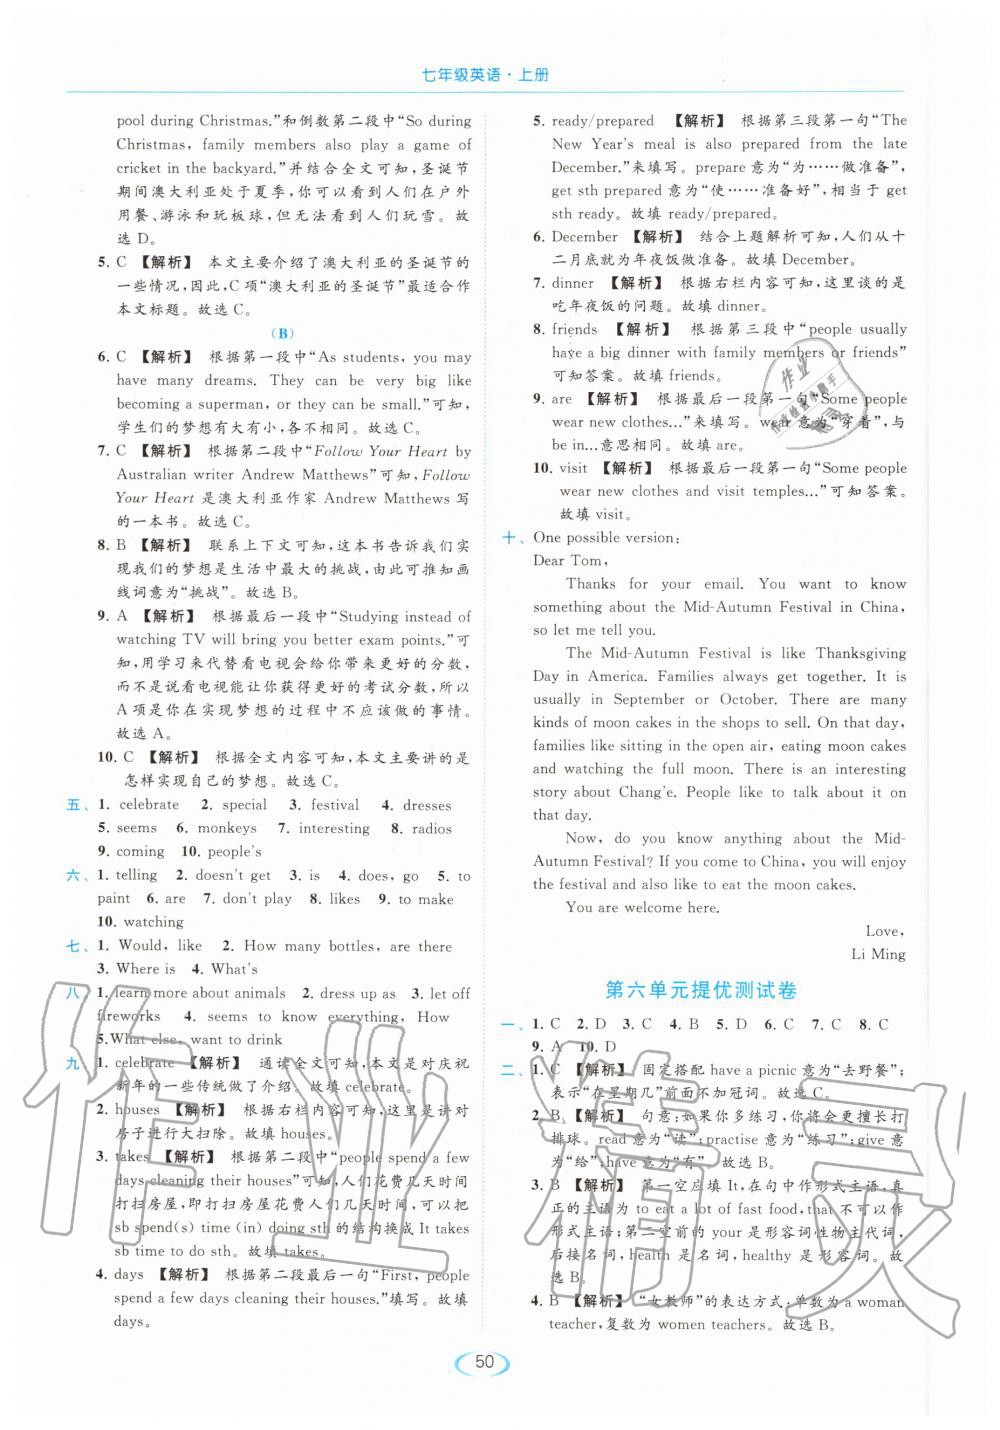 七年级英语·上册
pool during Christmas.”和倒数第二段中“So during
Christmas, family members also play a game of
cricket in the backyard.”并结合全文可知,圣诞节
期间澳大利亚处于夏季,你可以看到人们在户外
用餐、游泳和玩板球,但无法看到人们玩雪。故
选 D。
5. C 【解析】 本文主要介绍了澳大利亚的圣诞节的
一些情况,因此,C项“澳大利亚的圣诞节”最适合作
本文标题。故选 C。
(B)
6. C 【解析】 根据第一段中“As students, you may
have many dreams. They can be very big like
becoming a superman, or they can be small.”可知,
学生们的梦想有大有小,各不相同。故选 C。
7. C 【解析】 根据第二段中“Follow Your Heart by
Australian writer Andrew Matthews”可知,Follow
Your Heart 是澳大利亚作家 Andrew Matthews 写
的一本书。故选 C。
8. B 【解析】 联系上下文可知,这本书告诉我们实
现我们的梦想是生活中最大的挑战,由此可推知画
线词意为“挑战”。故选 B。
9. A 【解析】 根据最后一段中“Studying instead of
watching TV will bring you better exam points.”可
知,用学习来代替看电视会给你带来更好的分数,
而不是说看电视能让你获得更好的考试分数,所以
A 项是你在实现梦想的过程中不应该做的事情。
故选 A。
10. C 【解析】 根据全文内容可知,本文主要讲的是
怎样实现自己的梦想。故选 C。
五、1. celebrate 2. special 3. festival 4. dresses
5. seems 6. monkeys 7. interesting 8. radios
9. coming 10. people's
六、1. telling 2. doesn't get 3. is 4. does, go 5. to
paint 6. are 7. don't play 8. likes 9. to make
10. watching
七、1. Would, like 2. How many bottles, are there
3. Where is 4. What's
八、1. learn more about animals 2. dress up as 3. let off
fireworks 4. seems to know everything, How
5. What else, want to drink
九、1. celebrate 【解析】 通读全文可知,本文是对庆祝
新年的一些传统做了介绍。故填 celebrate.
2. houses 【解析】 根据右栏内容可知,这里是讲对
房子进行大扫除。故填 houses.
3. takes 【解析】 根据第二段中“people spend a few
days cleaning their houses”可知,人们花费几天时间
打扫房屋,即打扫房屋花费人们几天时间,可以把
sb spend(s) time (in) doing sth 的结构换成 It takes
sb time to do sth。故填 takes.
4. days 【解析】 根据第二段最后一句“First, people
spend a few days cleaning their houses.”填写。故填
days。
5. ready/prepared 【解析】 根据第三段第一句“The
New Year's meal is also prepared from the late
December.”来填写。prepare 意为“为……做准备”,
get sth prepared 意为“使……准备好”,相当于 get
sth ready。故填 ready/prepared。
6. December 【解析】 结合上题解析可知,人们从十
二月底就为年夜饭做准备。故填 December。
7. dinner 【解析】 根据右栏内容可知,这里谈的是
吃年夜饭的问题。故填 dinner。
8. friends 【解析】 根据第三段中“people usually
have a big dinner with family members or friends”
可知答案。故填 friends。
9. are 【解析】 根据最后一段第一句“Some people
wear new clothes...”来填写。wear 意为“穿着”,与
be in...意思相同。故填 are。
10. visit 【解析】 根据最后一段第一句“Some people
wear new clothes and visit temples...”可知答案。
故填 visit。
十、One possible version:
Dear Tom,
Thanks for your email. You want to know
something about the Mid-Autumn Festival in China,
so let me tell you.
The Mid-Autumn Festival is like Thanksgiving
Day in America. Families always get together. It is
usually in September or October. There are many
kinds of moon cakes in the shops to sell. On that day,
families like sitting in the open air, eating moon cakes
and watching the full moon. There is an interesting
story about Chang'e. People like to talk about it on
that day.
Now, do you know anything about the Mid-
Autumn Festival? If you come to China, you will enjoy
the festival and also like to eat the moon cakes.
You are welcome here.
Love,
Li Ming
第六单元提优测试卷
一、1. C 2. D 3. C 4. B 5. D 6. C 7. C 8. C
9. A 10. D
二、1. C 【解析】 固定搭配 have a picnic 意为“去野餐”;
表示“在星期几”前面不加冠词。故选 C。
2. B 【解析】 句意:如果你多练习,你将会更擅长打
排球。read 意为“读”;practise 意为“练习”;give 意
为“给”;have 意为“有”。故选 B。
3. B 【解析】 第一空应填 It,在句中作形式主语,真
正的主语为 to eat a lot of fast food,that 不可以作
形式主语;第二空前的 your 是形容词性物主代词,
后接名词,health 是名词,healthy 是形容词。故
选 B。
4. B 【解析】 “女教师”的表达方式:单数为 a woman
teacher,复数为 women teachers。故选 B。
50
作业精灵
作业
作业检查小帮手